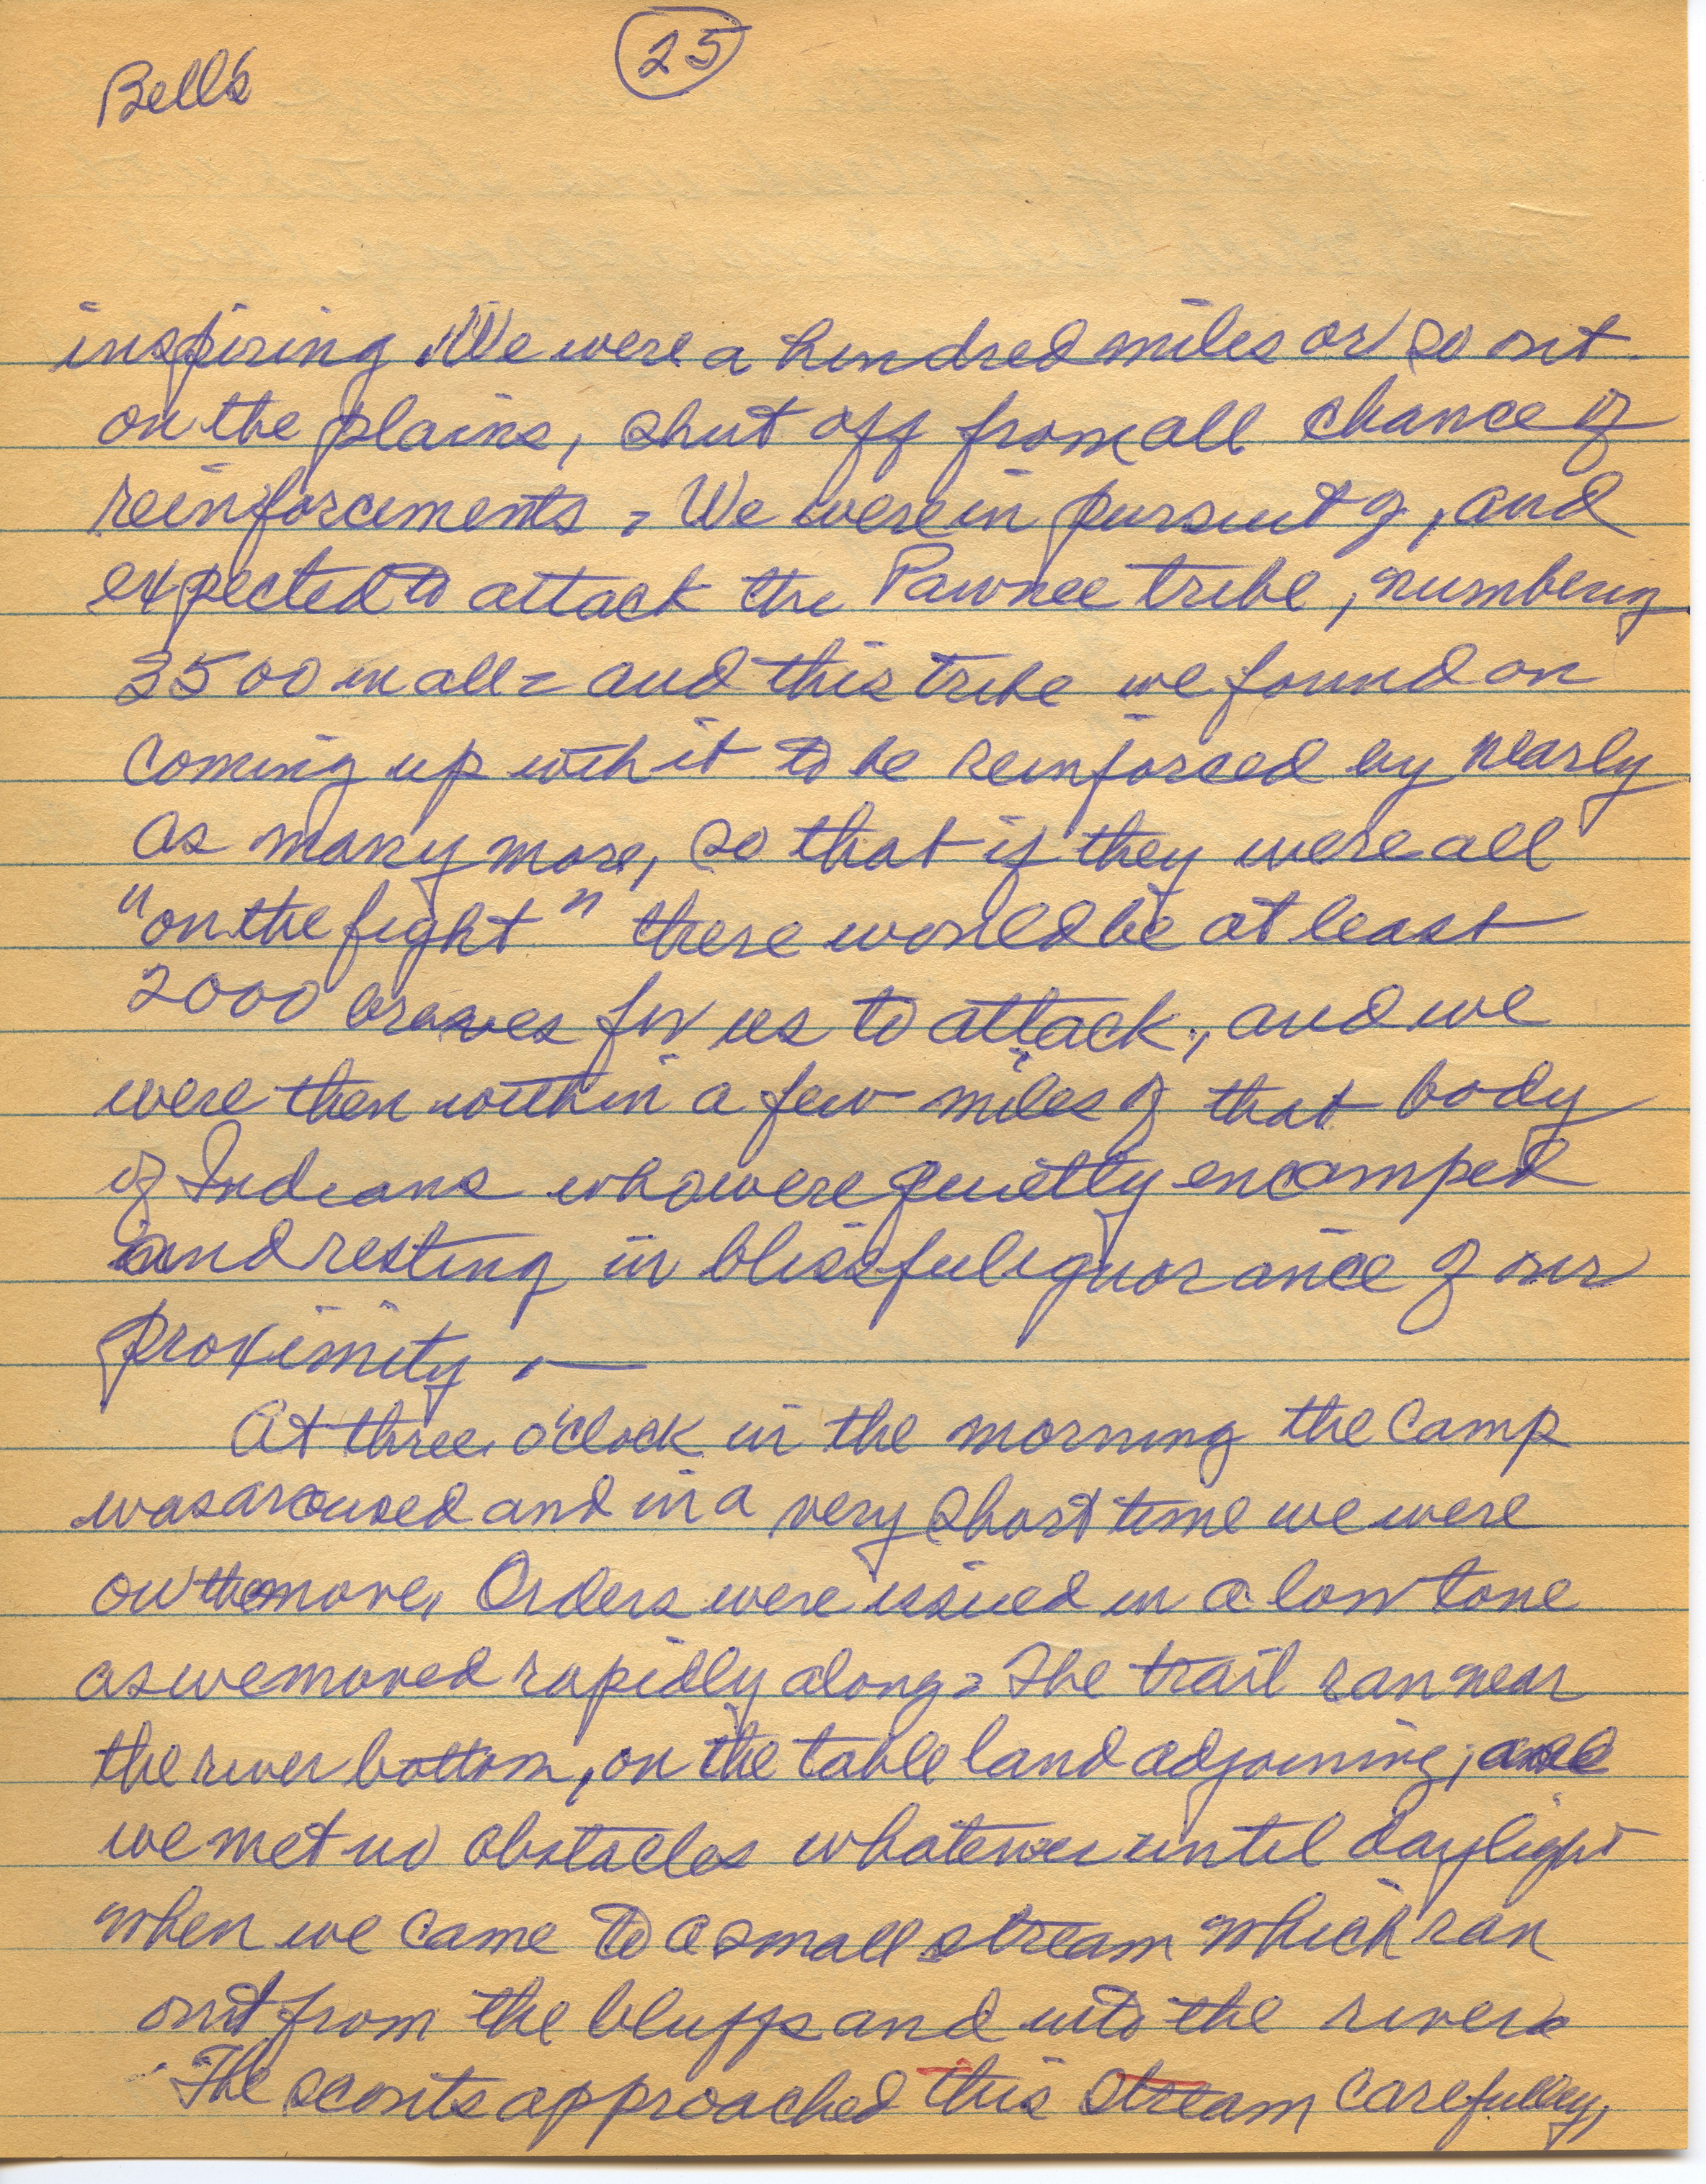 Bell's
25
inspiring. We were a hundred miles or so out
on the plains, shut off from all chance of
reinforcements. We were in pursuit of, and
expected to attack the Pawnee tribe, numbering
3500 in all - and this tribe we found on
coming up with it to be reinforced by nearly
as many more, so that if they were all
"on the fight" there would be at least
2000 braves for us to attack, and we
were then within a few miles of that body
of Indians who were quietly encamped
and resting in blissful ignorance of our
proximity. —
At three o'clock in the morning the camp
was aroused and in a very short time we were
on the move. Orders were issued in a low tone
as we moved rapidly along - The trail ran near
the river bottom, on the table land adjoining, and
we met no obstacles whatever until daylight
when we came to a small stream which ran
out from the bluffs and into the river.
The scouts approached this stream carefully,